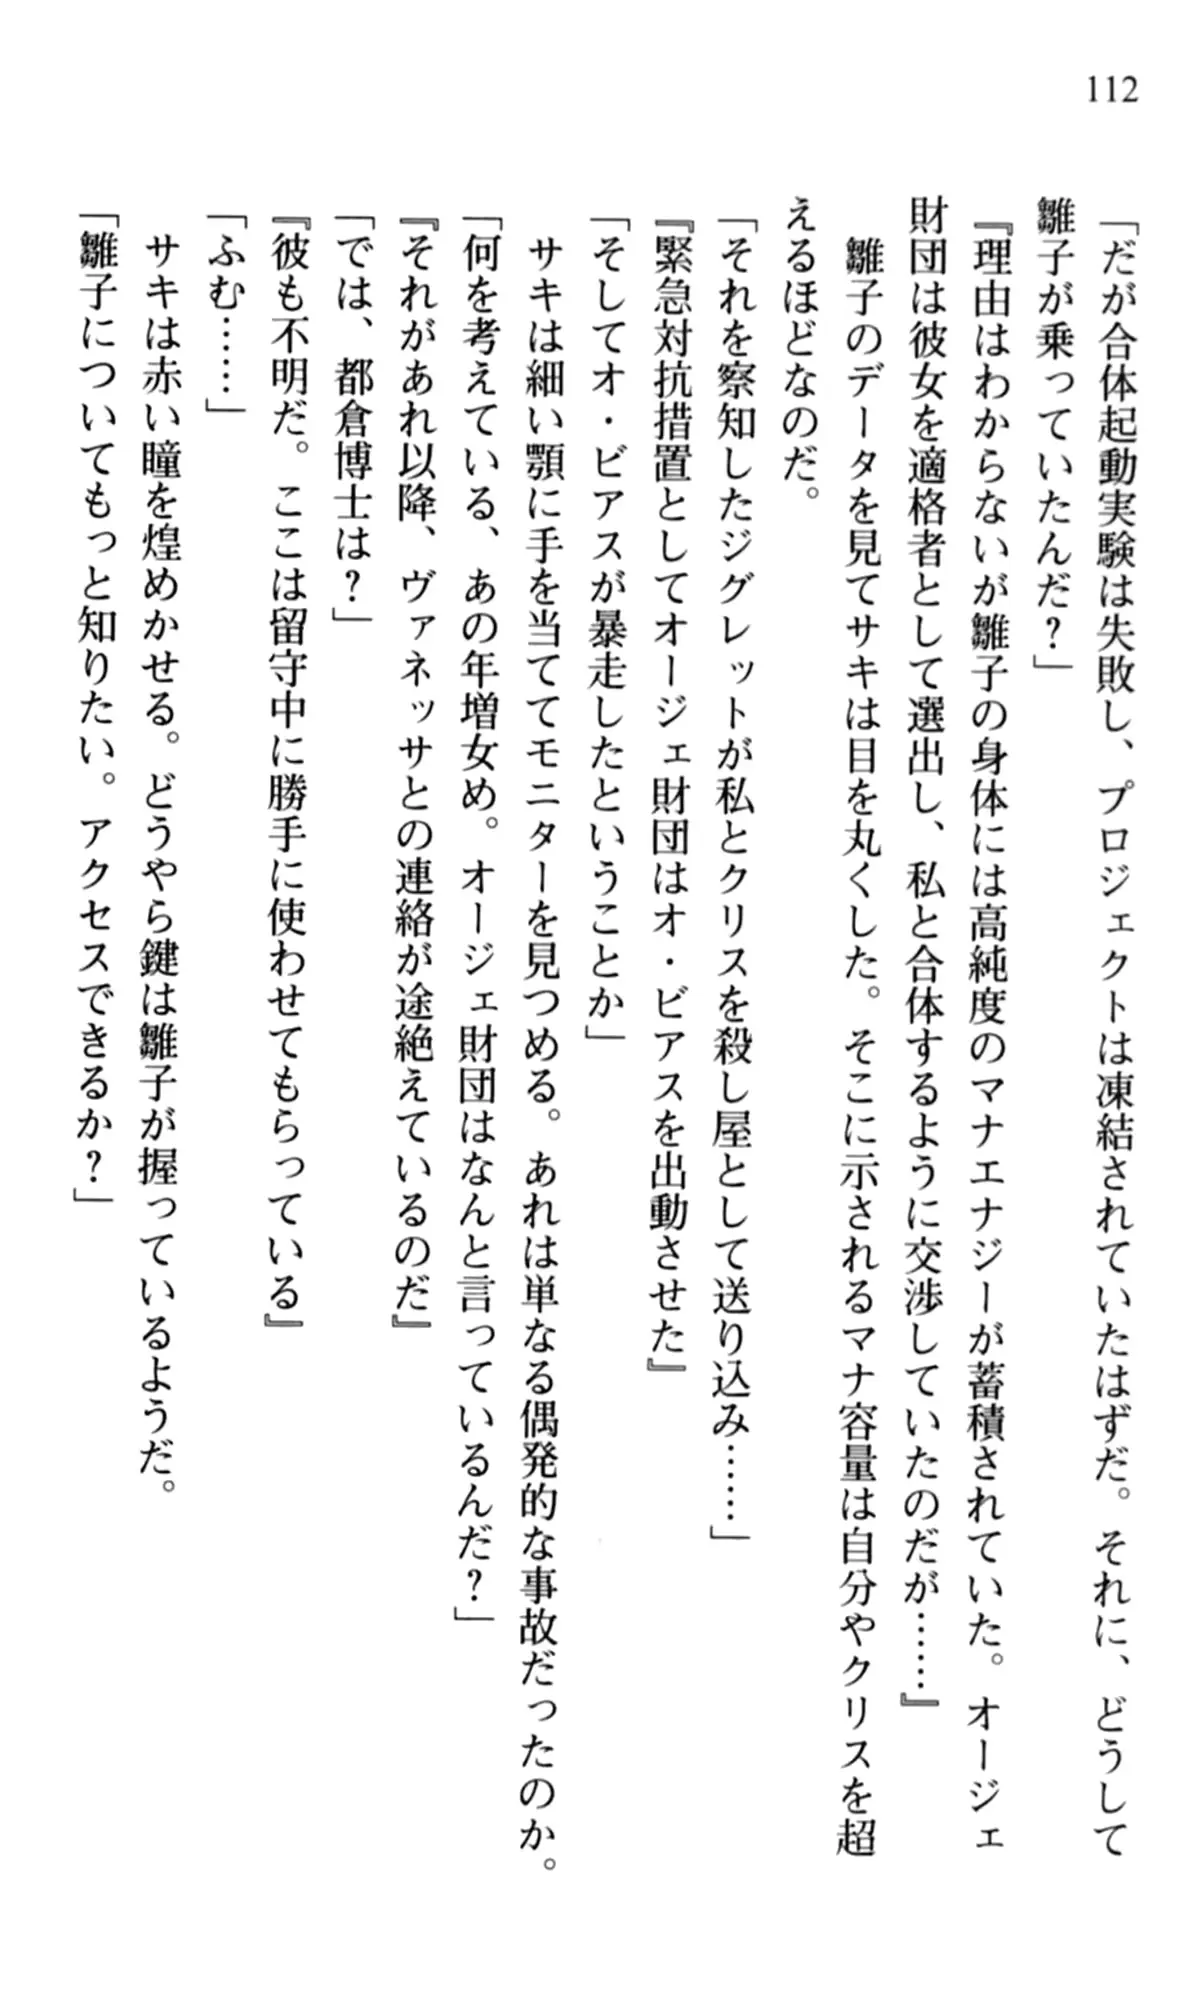 112
「だが合体起動実験は失敗し、プロジェクトは凍結されていたはずだ。それに、どうして
雛子が乗っていたんだ?」
『理由はわからないが雛子の身体には高純度のマナエナジーが蓄積されていた。オージェ
財団は彼女を適格者として選出し、私と合体するように交渉していたのだが……』
　雛子のデータを見てサキは目を丸くした。そこに示されるマナ容量は自分やクリスを超
えるほどなのだ。
「それを察知したジグレットが私とクリスを殺し屋として送り込み……」
『緊急対抗措置としてオージェ財団はオ・ビアスを出動させた』
「そしてオ・ビアスが暴走したということか」
　サキは細い顎に手を当ててモニターを見つめる。あれは単なる偶発的な事故だったのか。
「何を考えている、あの年増女め。オージェ財団はなんと言っているんだ?」
『それがあれ以降、ヴァネッサとの連絡が途絶えているのだ』
「では、都倉博士は?」
『彼も不明だ。ここは留守中に勝手に使わせてもらっている』
「ふむ……」
　サキは赤い瞳を煌めかせる。どうやら鍵は雛子が握っているようだ。
「雛子についてもっと知りたい。アクセスできるか?」